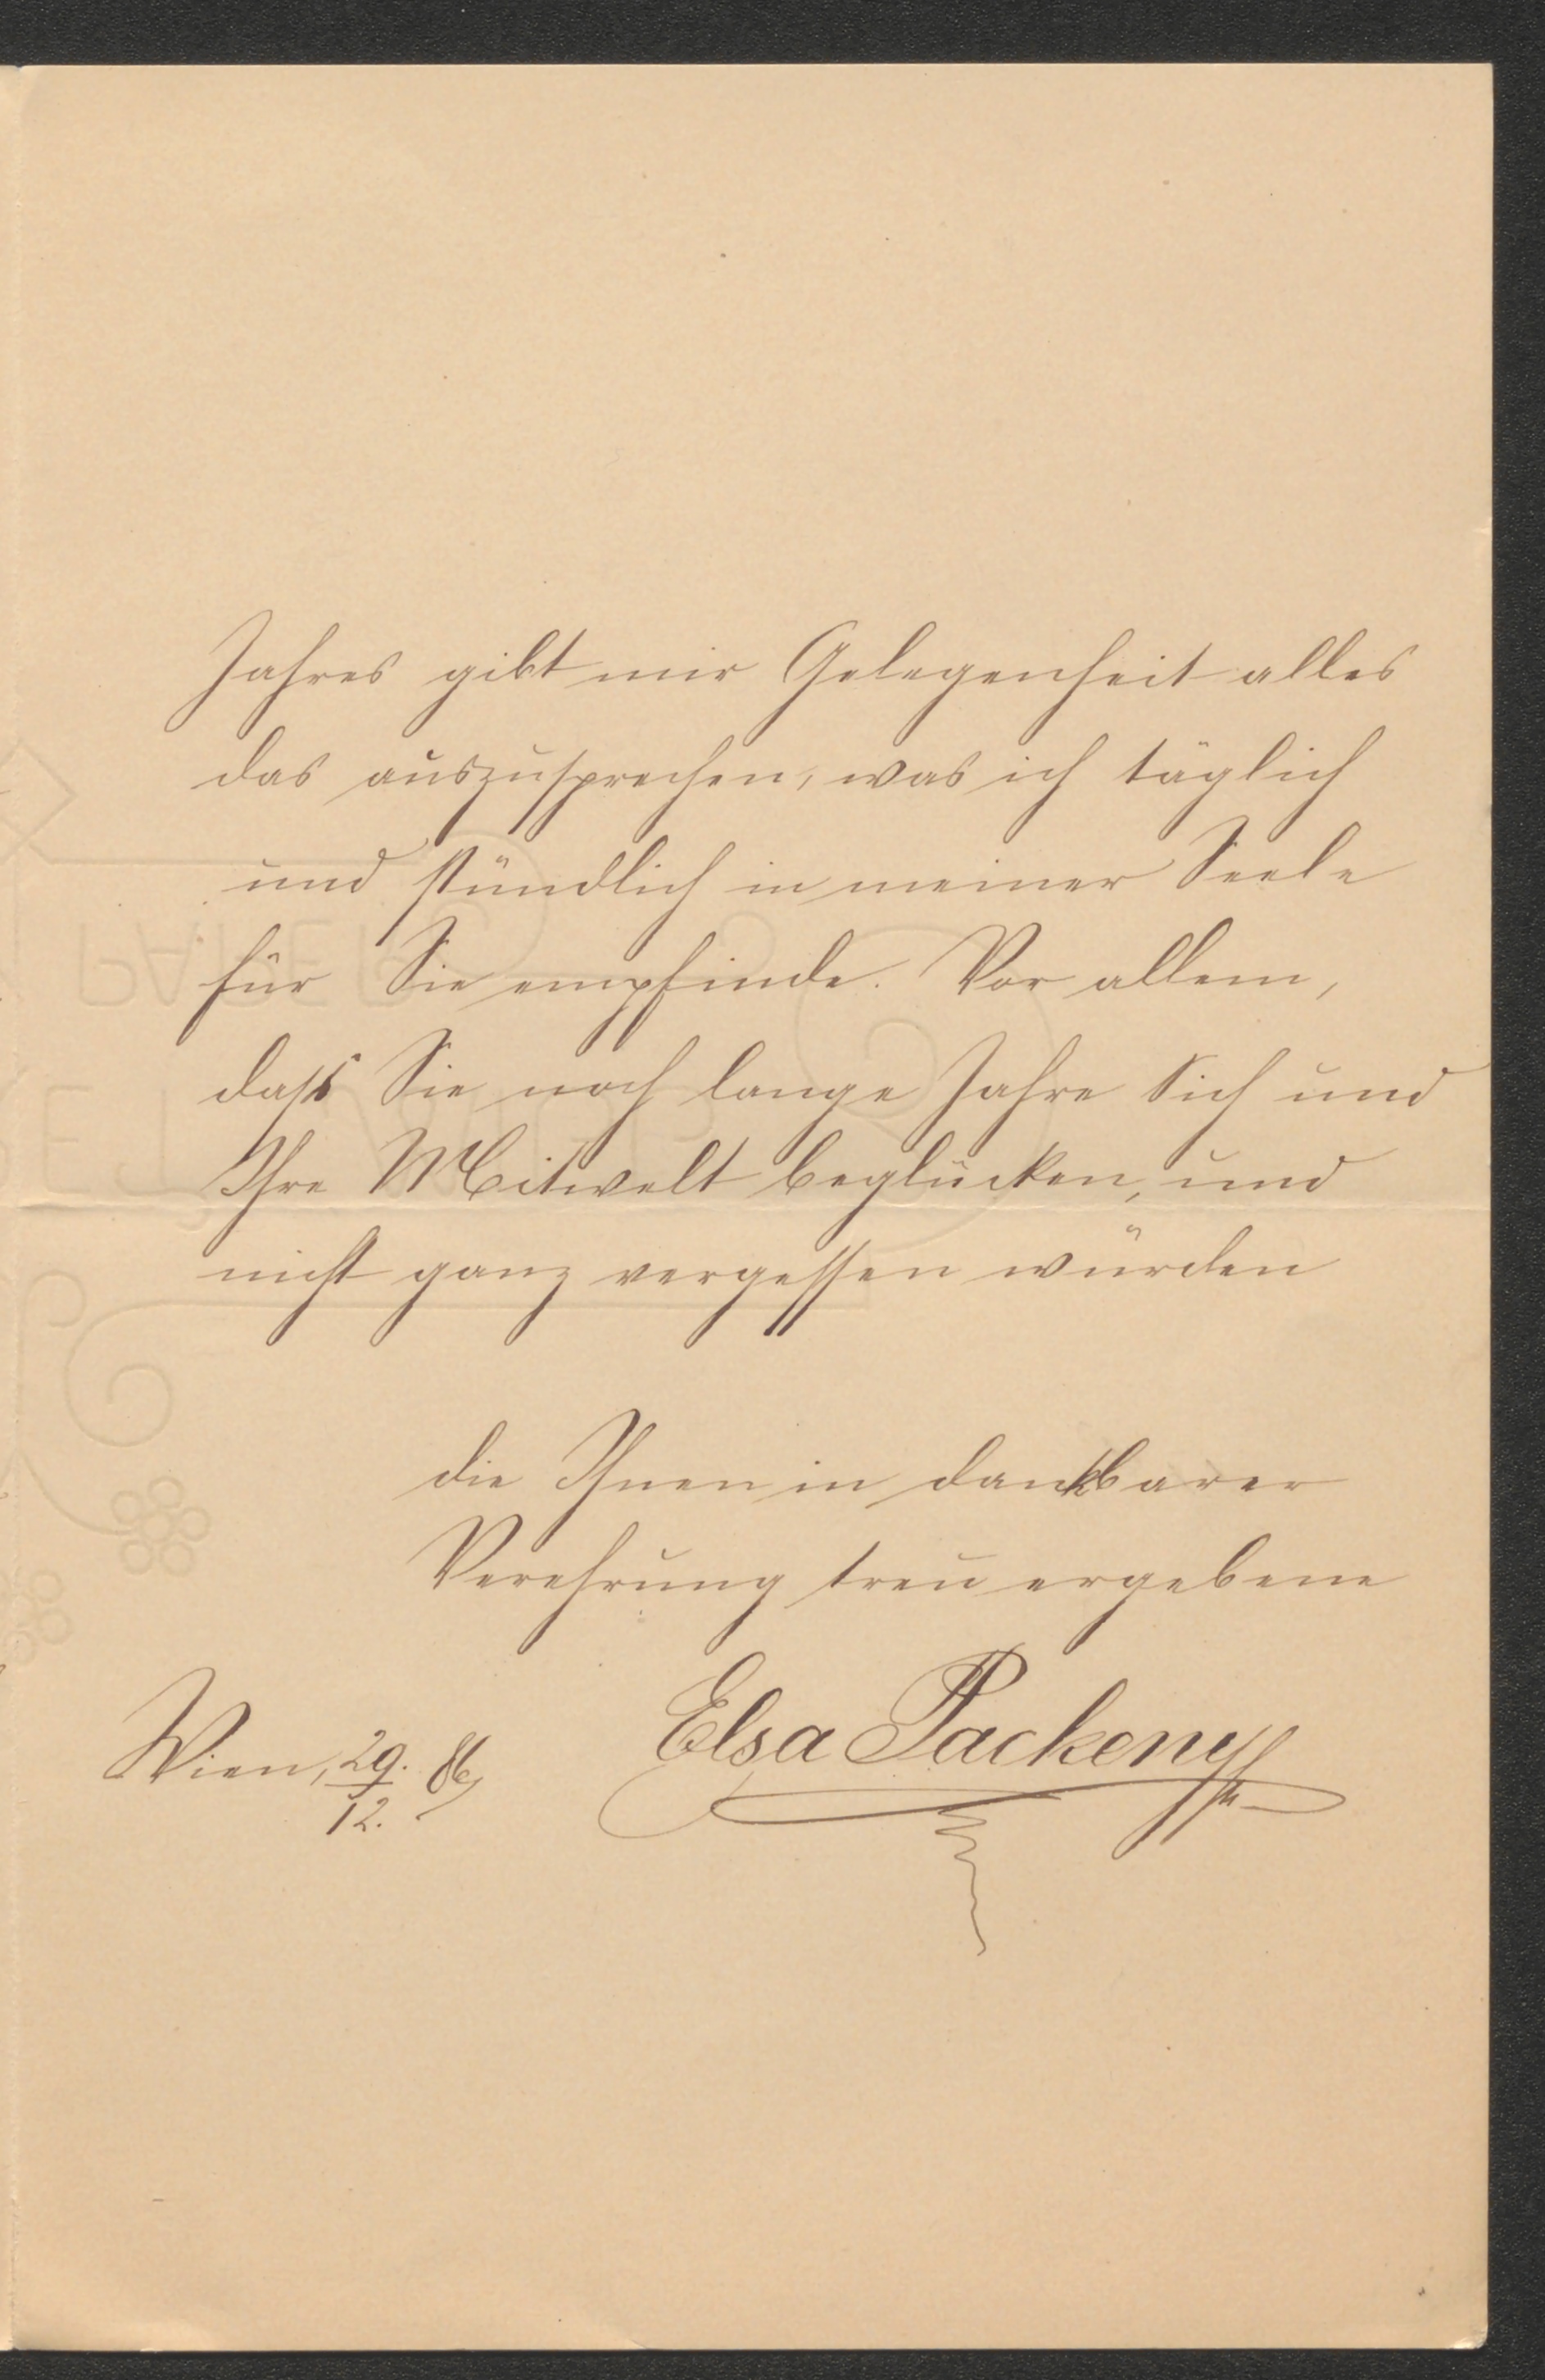 Jahres gibt mir Gelegenheit alles
das auszusprechen, was ich täglich
und stündlich in meiner Seele
für Sie empfinde. Vor allem,
dass Sie noch lange Jahre Sich und
Ihre Mitwelt beglücken, und
nicht ganz vergessen würden
die Ihnen in dankbarer
Verehrung treu ergebene
Elsa Packeny
Wien, 29. 86
12.